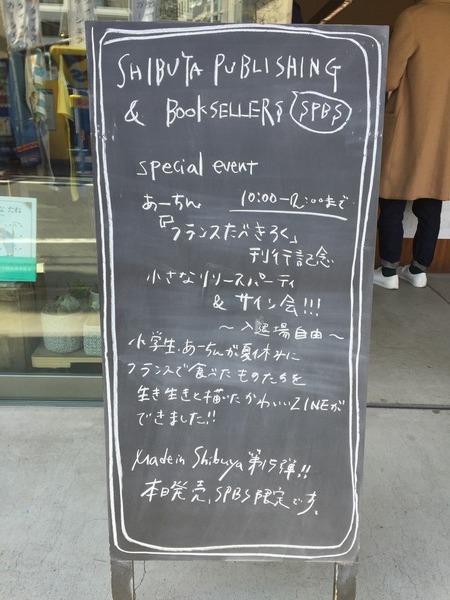 SHIBUYA PUBLISHING
& BOOKSELLERS SPBS
special event
あーちん 10:00-12:00まで
『フランスたべきろく』
刊行記念
小さなリリースパーティ
& サイン会!!!
〜入退場自由〜
小学生、あーちんが夏休みに
フランスで食べたものたちを
生き生きと描いたかわいいZINEが
できました!!
Made in Shibuya 第15弾!!
本日発売、SPBS限定です。